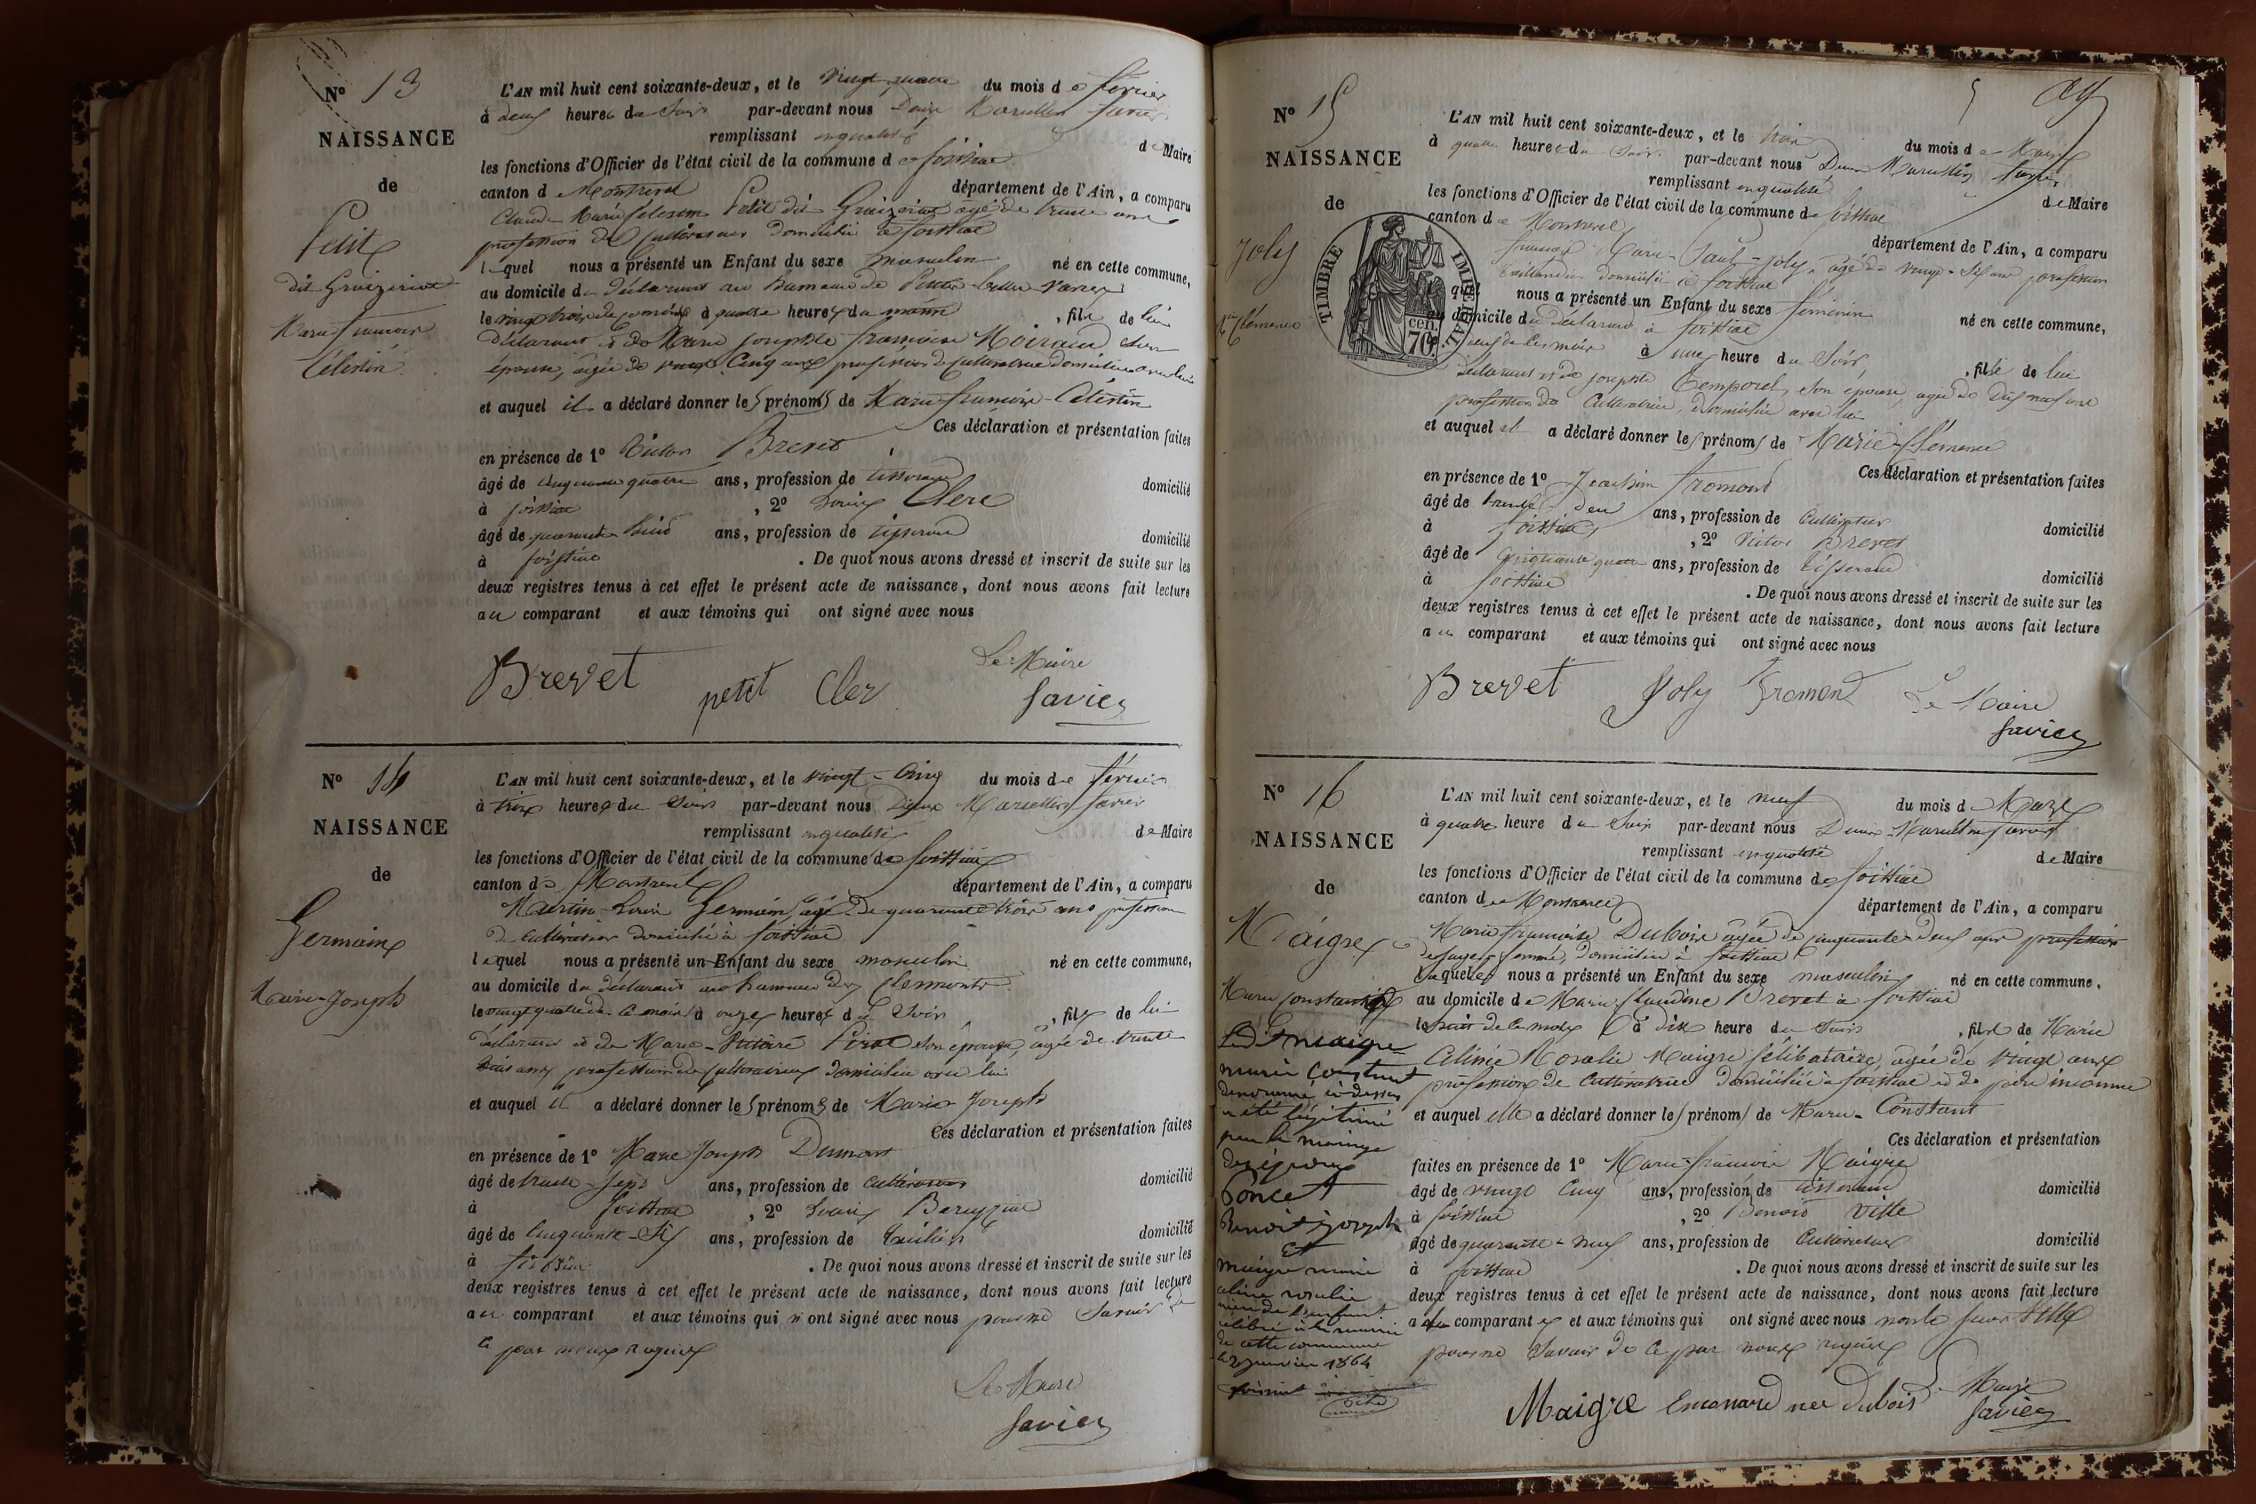 N° 13
NAISSANCE
de
Petit
dit Gruizeriat
Marie françois
Célestin
L'AN mil huit cent soixante-deux, et le vingt quatre du mois de février
à deux heures du Soir par-devant nous Marcellin favier
remplissant en qualité de Maire
les fonctions d'Officier de l'état civil de la commune de foissiat
canton de Montrevel département de l'Ain, a comparu
Claude Marie Petit dit âgé de trente ans
profession de Cultivateur domicilié à foissiat
lequel nous a présenté un Enfant du sexe masculin né en cette commune,
au domicile du déclarant au hameau de
le vingt trois de ce mois à quatre heures du matin , fils de lui
déclarant et de Marie josephte françoise Moiraud son
épouse, âgée de vingt Cinq ans profession de Cultivatrice domiciliée avec lui
et auquel il a déclaré donner les prénoms de Marie-françois-Célestin
Ces déclaration et présentation faites
en présence de 1° Victor Brevet
âgé de cinquante quatre ans, profession de tisserand domicilié
à foissiat , 2° Louis Clerc
âgé de quarante huit ans, profession de tisserand domicilié
à foissiat . De quoi nous avons dressé et inscrit de suite sur les
deux registres tenus à cet effet le présent acte de naissance, dont nous avons fait lecture
au comparant et aux témoins qui ont signé avec nous
Le Maire
Brevet petit Cler favier
N° 14
NAISSANCE
de
Germain
Marie-Joseph
L'AN mil huit cent soixante-deux, et le vingt-Cinq du mois de février
à trois heures du Soir par-devant nous Marcellin favier
remplissant en qualité de Maire
les fonctions d'Officier de l'état civil de la commune de foissiat
canton de Montrevel département de l'Ain, a comparu
Martin-Louis Germain, âgé de quarante trois ans profession
de Cultivateur domicilié à foissiat
lequel nous a présenté un Enfant du sexe masculin né en cette commune,
au domicile du déclarant au hameau des Clermonts
le vingt quatre de ce mois à onze heures du Soir , fils de lui
déclarant et de Marie- son épouse, âgée de trente
trois ans profession de Cultivatrice domiciliée avec lui
et auquel il a déclaré donner les prénoms de Marie Joseph
Ces déclaration et présentation faites
en présence de 1° Marie Joseph Dumont
âgé de trente-sept ans, profession de Cultivateur domicilié
à foissiat , 2° Louis
âgé de Cinquante-Six ans, profession de domicilié
à foissiat . De quoi nous avons dressé et inscrit de suite sur les
deux registres tenus à cet effet le présent acte de naissance, dont nous avons fait lecture
au comparant et aux témoins qui n'ont signé avec nous pour ne Savoir de
ce par nous requis
Le Maire
favier
N° 15
NAISSANCE
de
Joly
Mie Clémence
TIMBRE IMPERIAL
70 cen.
L'AN mil huit cent soixante-deux, et le trois du mois de Mars
à quatre heures du Soir par-devant nous Marcellin favier
remplissant en qualité de Maire
les fonctions d'Officier de l'état civil de la commune de foissiat
canton de Montrevel département de l'Ain, a comparu
françois Marie-Paul-joly âgé de vingt-six ans profession
domicilié à foissiat
qui nous a présenté un Enfant du sexe féminin né en cette commune,
au domicile du déclarant à foissiat
de ce mois à une heure du Soir , fille de lui
déclarant et de josephte Temporel, son épouse, âgée de dix neuf ans
profession de Cultivatrice, domiciliée avec lui
et auquel il a déclaré donner les prénoms de Marie-Clémence
Ces déclaration et présentation faites
en présence de 1° Joachim fromont
âgé de trente deux ans, profession de Cultivateur domicilié
à foissiat , 2° Victor Brevet
âgé de Cinquante quatre ans, profession de tisserand domicilié
à foissiat . De quoi nous avons dressé et inscrit de suite sur les
deux registres tenus à cet effet le présent acte de naissance, dont nous avons fait lecture
au comparant et aux témoins qui ont signé avec nous
Brevet Joly fromont Le Maire
favier
N° 16
NAISSANCE
de
Maigre
Marie Constant
Led. maigre
marie Constant
denommé ci dessus
a été légitimé
par le mariage
des époux
Poncet
Benoit joseph
Et
maigre marie
celinie rosalie
mère de l'enfant
célébré à la mairie
de cette commune
le janvier 1864
L'AN mil huit cent soixante-deux, et le neuf du mois de Mars
à quatre heure du Soir par-devant nous Marcellin favier
remplissant en qualité de Maire
les fonctions d'Officier de l'état civil de la commune de foissiat
canton de Montrevel département de l'Ain, a comparu
Marie françoise Dubois âgée de cinquante-deux ans profession
de sage-femme, domiciliée à foissiat
laquelle nous a présenté un Enfant du sexe masculin né en cette commune,
au domicile de Marie Claudine Brevet à foissiat
le huit de ce mois à dix heure du Soir , fils de Marie
Celinie Rosalie Maigre Célibataire, âgée de vingt ans
profession de Cultivatrice domiciliée à foissiat et de père inconnu
et auquel elle a déclaré donner les prénoms de Marie-Constant
Ces déclaration et présentation
faites en présence de 1° Marie-françois Maigre
âgé de vingt Cinq ans, profession de tisserand domicilié
à foissiat , 2° Benoit Ville
âgé de quarante-neuf ans, profession de Cultivateur domicilié
à foissiat . De quoi nous avons dressé et inscrit de suite sur les
deux registres tenus à cet effet le présent acte de naissance, dont nous avons fait lecture
a la comparante et aux témoins qui ont signé avec nous non le sieur Ville
pour ne Savoir de ce par nous requis
Maigre née dubois Maire
favier